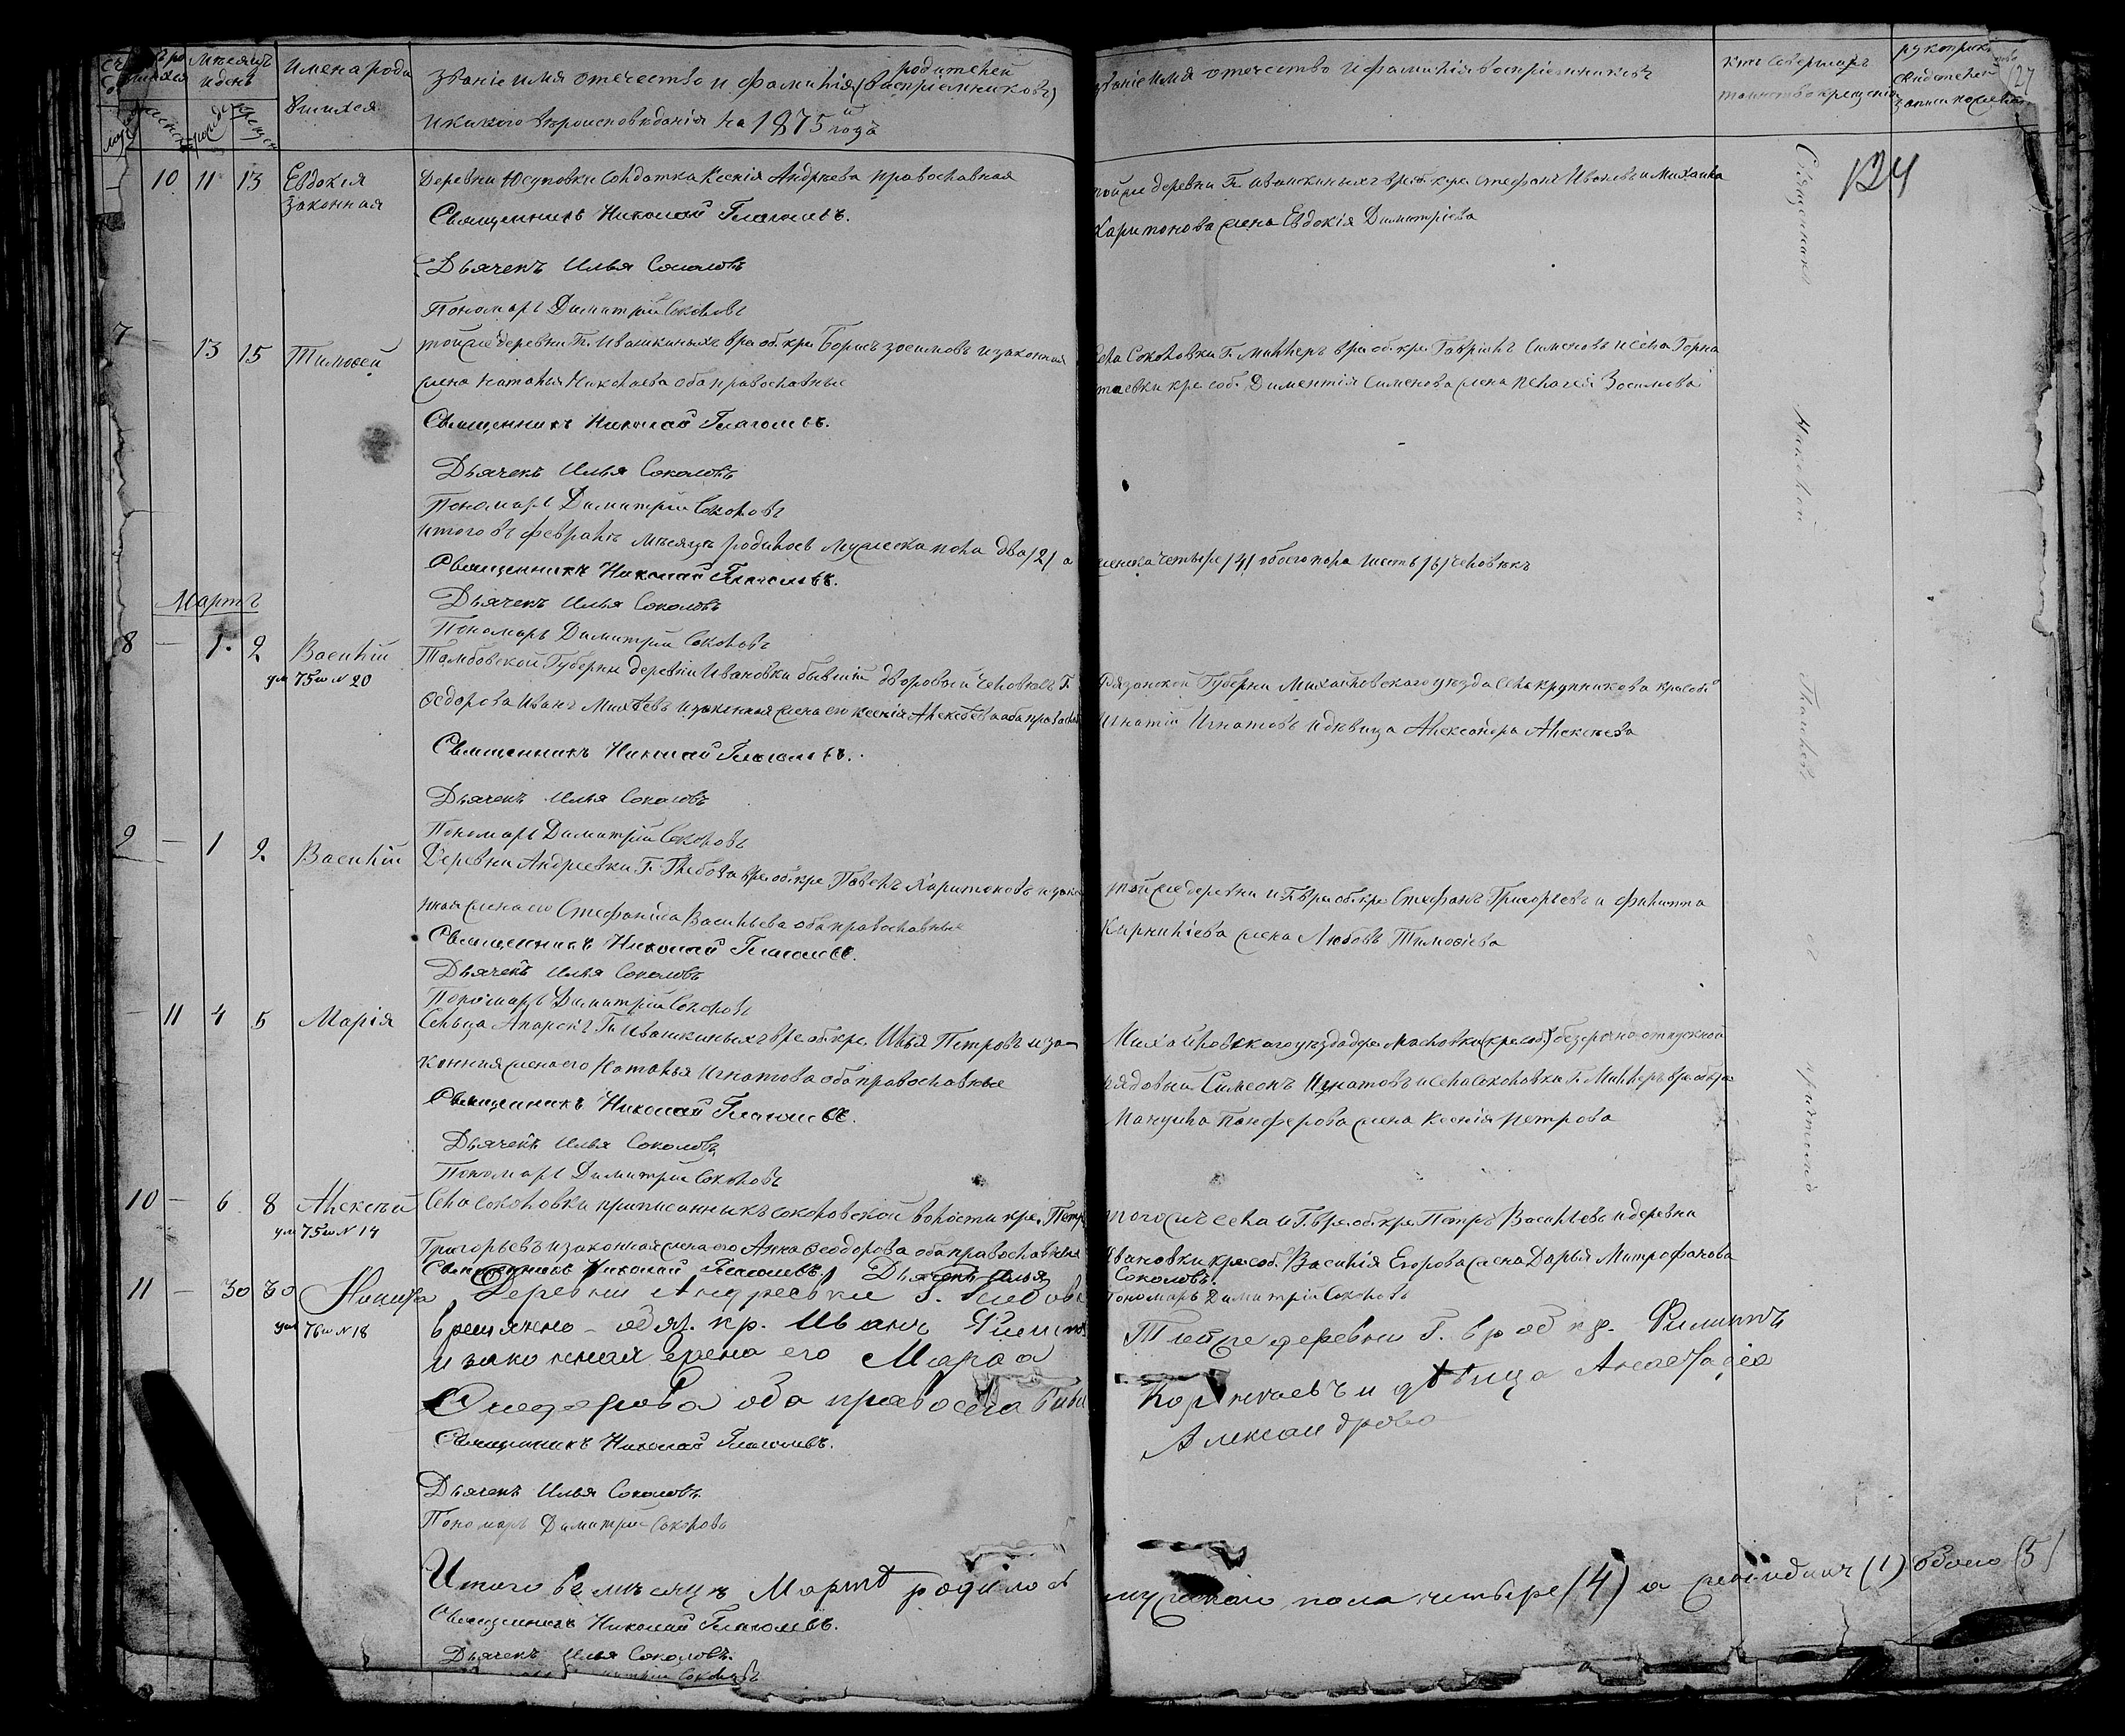 имена роди
вшихся
званіе имя отечество и фамилія (воспріемниковъ) родителей
и какого вѣроисповѣданія на 1875 й годъ
званіе имя отечество и фамилія воспріемниковъ
кто совершалъ
таинство крещенія
124
10 11 13 Евдокія
законная
Деревни Юсуповки солдатка Ксенія Андреева православная
Священникъ Николай Глаголевъ.
Дьячекъ Илья Соколовъ
Пономарь Димитрій Соколовъ
тойже деревни Г. Ивашкиныхъ вре. об. кре. Стефанъ Ивановъ и Михаила
Харитонова жена Евдокія Димитріева
7 13 15 Тимоѳей
тойже деревни Г. Ивашкиныхъ вре об. кре Борисъ Зосимовъ и законная
жена Наталья Николаева оба православные
Священникъ Николай Глаголевъ.
Дьячекъ Илья Соколовъ
Пономарь Димитрій Соколовъ
села Соколовки Г. Миллеръ вре. об. кре. Гавріилъ Сименовъ и села Горна
таевки кре соб. Диментія Сименова жена Пелагея Зосимова
итого въ февралѣ мѣсяцѣ родилось мужеска пола два /2/ а
женска четыре /4/ обоего пола шесть /6/ человѣкъ
Священникъ Николай Глаголевъ.
Дьячекъ Илья Соколовъ
Пономарь Димитрій Соколовъ
Мартъ
8 — 1. 2. Василій
ум 75го N 20
Тамбовской Губерни деревни Ивановки бывшій дворовый человѣкъ Г.
Ѳедорова Иванъ Михѣевъ и законная жена его Ксенія Алексѣева оба правосла
Священникъ Николай Глаголевъ.
Дьячекъ Илья Соколовъ
Пономарь Димитрій Соколовъ
Рязанской Губерни Михайловскаго уезда села крупникова кре соб.
Игнатій Игнатовъ и дѣвица Александра Алексѣева
9 — 1 2. Василій
Деревни Андреевки Г. Глебова вре. об. кре Павелъ Харитоновъ и зако
нная жена его Стефанида Васильева оба православные
Священникъ Николай Глаголевъ.
Дьячекъ Илья Соколовъ
Пономарь Димитрій Соколовъ
тойже деревни и Г. вре. об. кре Стефанъ Григорьевъ и филиппа
Кирилліева жена Любовь Тимоѳіева
— 11 4 5 Марія
Сельца Г. Ивашкиныхъ вре об. кре. Илья Петровъ и за-
конная жена его Наталья Игнатова оба православные
Священникъ Николай Глаголевъ.
Дьячекъ Илья Соколовъ
Пономарь Димитрій Соколовъ
Михайловскаго уезда дере Масловки (кре соб.) безсрочно отпускной
рядовый Симеонъ Игнатовъ и села Соколовки Г. Миллеръ вре. об кре
Мануила Панферова жена Ксенія Петрова
10 — 6 8 Алексѣй
ум 75го N 14
Села Соколовки приписанникъ соколовской волости кре. Петръ
Григорьевъ и законная жена его Анна Ѳеодорова оба православные
Священникъ Николай Глаголевъ. Дьячекъ Илья
Соколовъ.
Пономарь Димитрій Соколовъ
тогожъ села и Г. вре. об. кре. Петръ Васильевъ и деревни
Ивановки кре соб. Василія Егорова жена Дарья Митрофанова
11 — 30 30 Никита
ум 76го N 18
Деревни Андреевки Г. Глебова
временно-обяз. кр. Иванъ
и законная жена его Марѳа
Ѳиодорова оба православны
Священникъ Николай Глаголевъ.
Дьячекъ Илья Соколовъ
Пономарь Димитрій Соколовъ
Тойже деревни Г. вр об кр. Филиппъ
и дѣвица
Александрова
Итого въ мѣсяцѣ Мартѣ родилось
мужскаго пола четыре (4) а (1) обоего (5)
Священникъ Николай Глаголевъ.
Дьячекъ Илья Соколовъ.
Священникъ Николай Глаголевъ